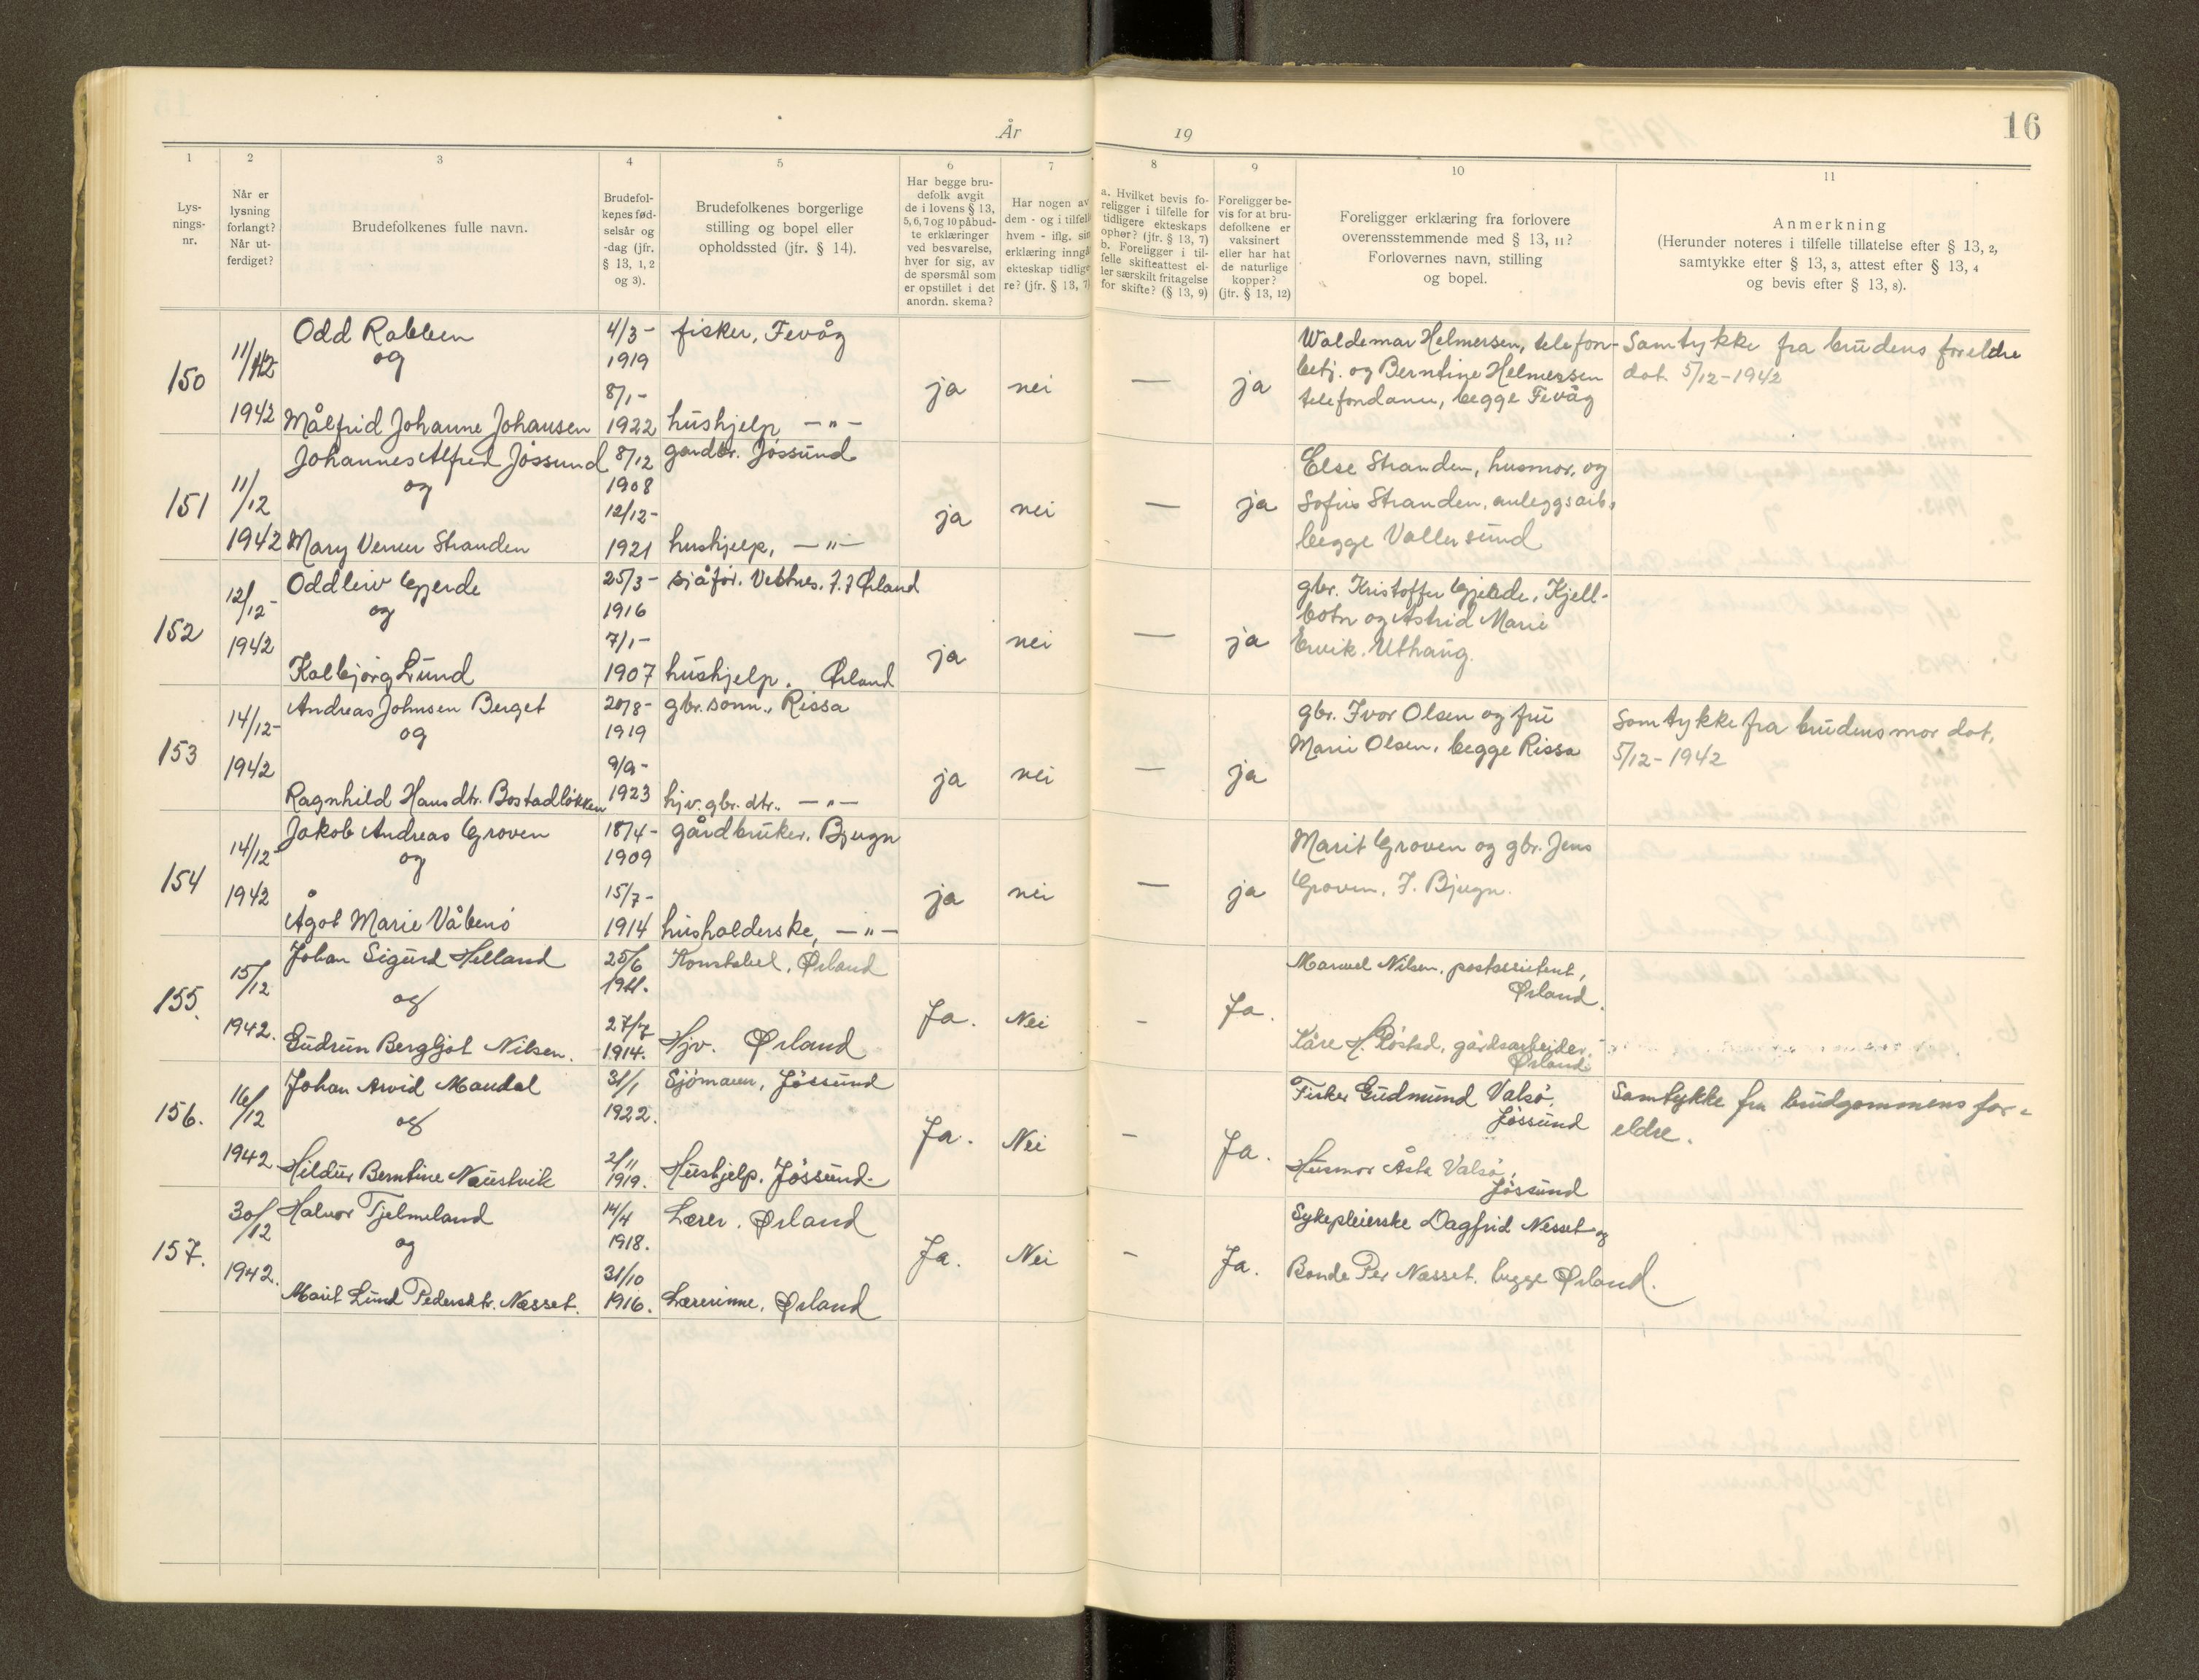 År 19
16
1
2
3
4
5
6
7
8
9
10
11
Lys-
nings-
nr.
Når er
lysning
forlangt?
Når ut-
ferdiget?
Brudefolkenes fulle navn.
Brudefol-
kenes fød-
selsår og
-dag (jfr.
§ 13, 1, 2
og 3).
Brudefolkenes borgerlige
stilling og bopel eller
opholdssted (jfr. § 14).
Har begge bru-
defolk avgit
de i lovens § 13,
5, 6, 7 og 10 påbud-
te erklæringer
ved besvarelse,
hver for sig, av
de spørsmål som
er opstillet i det
anordn. skema?
Har nogen av
dem - og i tilfelle
hvem - iflg. sin
erklæring inngå
ekteskap tidlige
re? (jfr. § 13, 7)
a. Hvilket bevis fo-
religger i tilfelle for
tidligere ekteskaps
ophør? (jfr. § 13, 7)
b. Foreligger i til-
felle skifteattest el-
ler særskilt fritagelse
for skifte? (§ 13, 9)
Foreligger be-
vis for at bru-
defolkene er
vaksinert
eller har hat
de naturlige
kopper?
(jfr. § 13, 12)
Foreligger erklæring fra forlovere
overensstemmende med § 13, 11?
Forlovernes navn, stilling
og bopel.
Anmerkning
(Herunder noteres i tilfelle tillatelse efter § 13, 2,
samtykke efter § 13, 3, attest efter § 13, 4
og bevis efter § 13, 8).
150
11/12
1942
Odd Rabben
og
Målfrid Johanne Johansen
4/3-
1919
8/1-
1922
fisker, Fevåg
hushjelp —"—
ja
nei
—
ja
Waldemar Helmersen, telefon-
betj. og Berntine Helmersen
telefondame, begge Fevåg
Samtykke fra brudens foreldre
dat. 5/12-1942
151
11/12
1942
Johannes Alfred Jøssund
og
Mary Verner Stranden
8/12
1908
12/12-
1921
gardbr. Jøssund
hushjelp, —"—
ja
nei
—
ja
Else Stranden, husmor, og
Sofus Stranden, anleggsarb.
begge Vallersund
152
12/12-
1942
Oddleiv Gjerde
og
Kolbjørg Lund
25/3-
1916
7/1-
1907
sjåfør.
hushjelp. Ørland
ja
nei
—
ja
gbr. Kristoffer Gjerde, Kjell-
botn og Astrid Marie
Ervik. Uthaug.
153
14/12-
1942
Andreas Johnsen Berget
og
Ragnhild Hansdtr. Bostadløkken
20/8-
1919
9/9-
1923
gbr. sønn., Rissa
hjv. gbr. dtr.. —"—
ja
nei
—
ja
gbr. Ivor Olsen og fru
Marie Olsen, begge Rissa
Samtykke fra brudens mor dat.
5/12-1942
154
14/12-
1942
Jakob Andreas Groven
og
Ågot Marie Våbenø
18/4-
1909
15/7-
1914
gårdbruker, Bjugn
husholderske, —"—
ja
nei
—
ja
Marit Groven og gbr. Jens
Groven, J. Bjugn.
155.
15/12
1942.
Johan Sigurd Helland
og
Gudrun Bergljot Nilsen.
25/6
27/7
1914.
Konstabel, Ørland
Hjv. Ørland
Ja.
Nei
-
Ja.
Manuel Nilsen, postassistent,
Ørland.
Kåre H. Røstad, gårdsarbeider,
Ørland
156.
16/12
1942
Johan Arvid Mandal
og
Hildur Berntine Naustvik
31/1
1922.
2/11
1919.
Sjømann, Jøssund
Hushjelp, Jøssund.
Ja.
Nei
-
Ja.
Fisker Gudmund Valsø,
Jøssund
Husmor Åsta Valsø,
Jøssund
Samtykke fra brudgommens for-
eldre.
157.
30/12
1942.
Halvor Tjelmeland
og
Marit Lund Pedersdtr. Næsset.
14/4
1918.
31/10
1916.
Lærer. Ørland
Lærerinne, Ørland
Ja.
Nei
-
Ja.
Sykepleierske Dagfrid Nesset og
Bonde Per Næsset, begge Ørland.